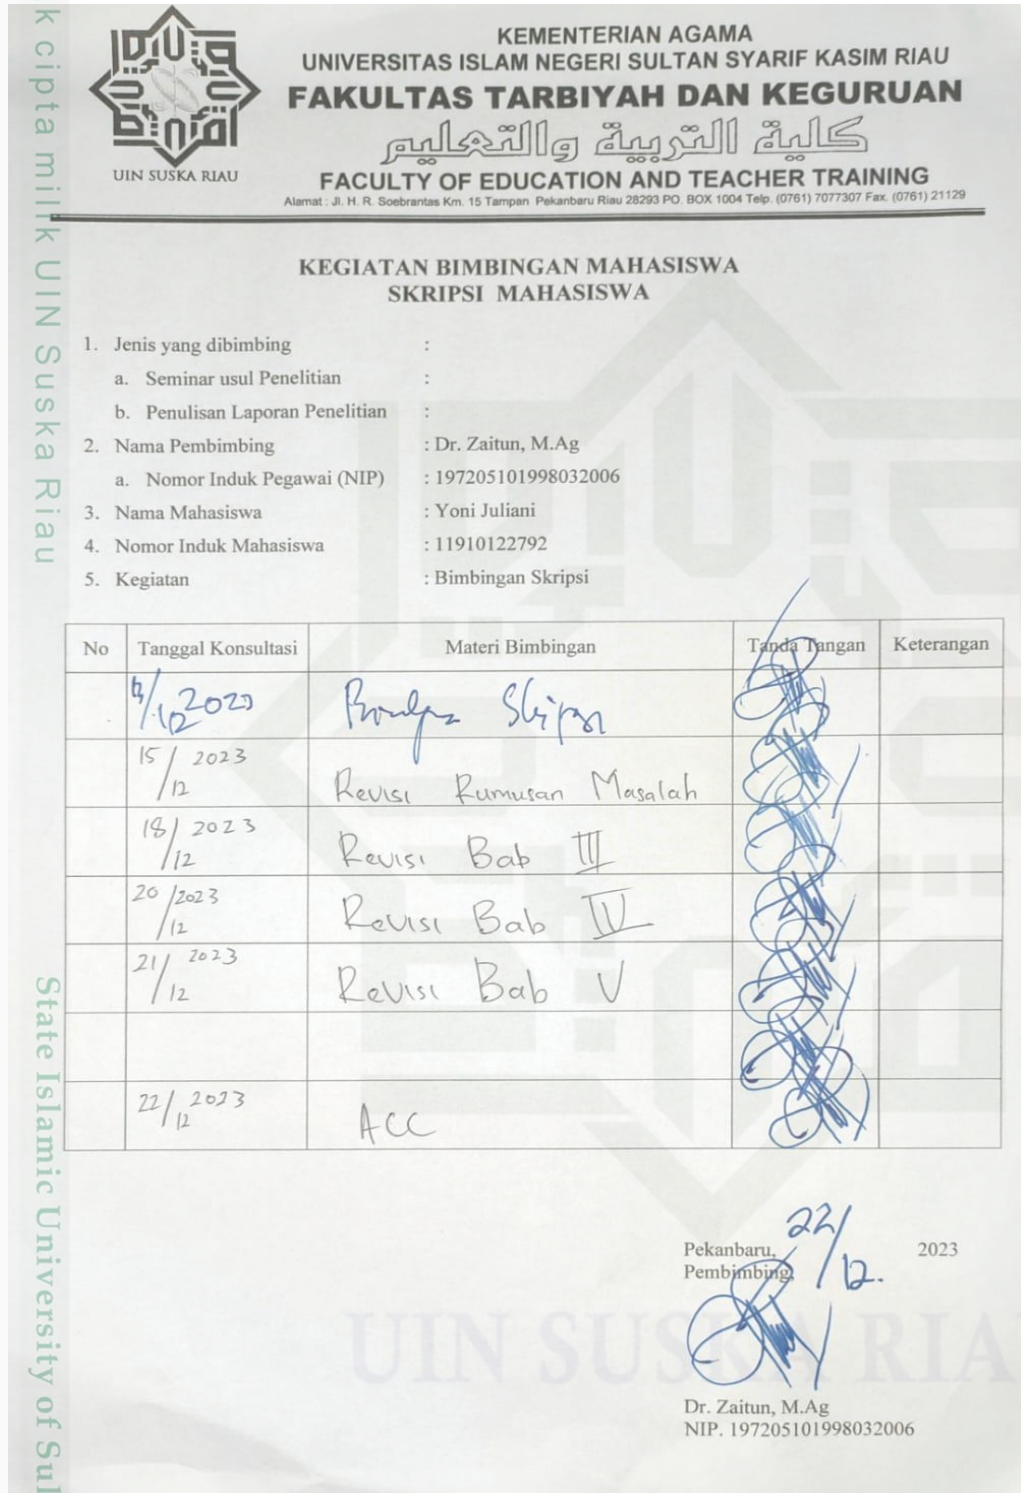 k cipta milik UIN Suska Riau
State Islamic University of Sul
UIN SUSKA RIAU
KEMENTERIAN AGAMA
UNIVERSITAS ISLAM NEGERI SULTAN SYARIF KASIM RIAU
FAKULTAS TARBIYAH DAN KEGURUAN
كلية التربية والتعليم
FACULTY OF EDUCATION AND TEACHER TRAINING
Alamat : Jl. H. R. Soebrantas Km. 15 Tampan Pekanbaru Riau 28293 PO. BOX 1004 Telp. (0761) 7077307 Fax. (0761) 21129
KEGIATAN BIMBINGAN MAHASISWA
SKRIPSI MAHASISWA
1. Jenis yang dibimbing :
a. Seminar usul Penelitian :
b. Penulisan Laporan Penelitian :
2. Nama Pembimbing : Dr. Zaitun, M.Ag
a. Nomor Induk Pegawai (NIP) : 197205101998032006
3. Nama Mahasiswa : Yoni Juliani
4. Nomor Induk Mahasiswa : 11910122792
5. Kegiatan : Bimbingan Skripsi
No Tanggal Konsultasi Materi Bimbingan Tanda Tangan Keterangan
/12 2023
15/12 2023 Revisi Rumusan Masalah
18/12 2023 Revisi Bab III
20/12 2023 Revisi Bab IV
21/12 2023 Revisi Bab V
22/12 2023 ACC
Pekanbaru, 22/12. 2023
Pembimbing,
UIN SUSKA RIA
Dr. Zaitun, M.Ag
NIP. 197205101998032006